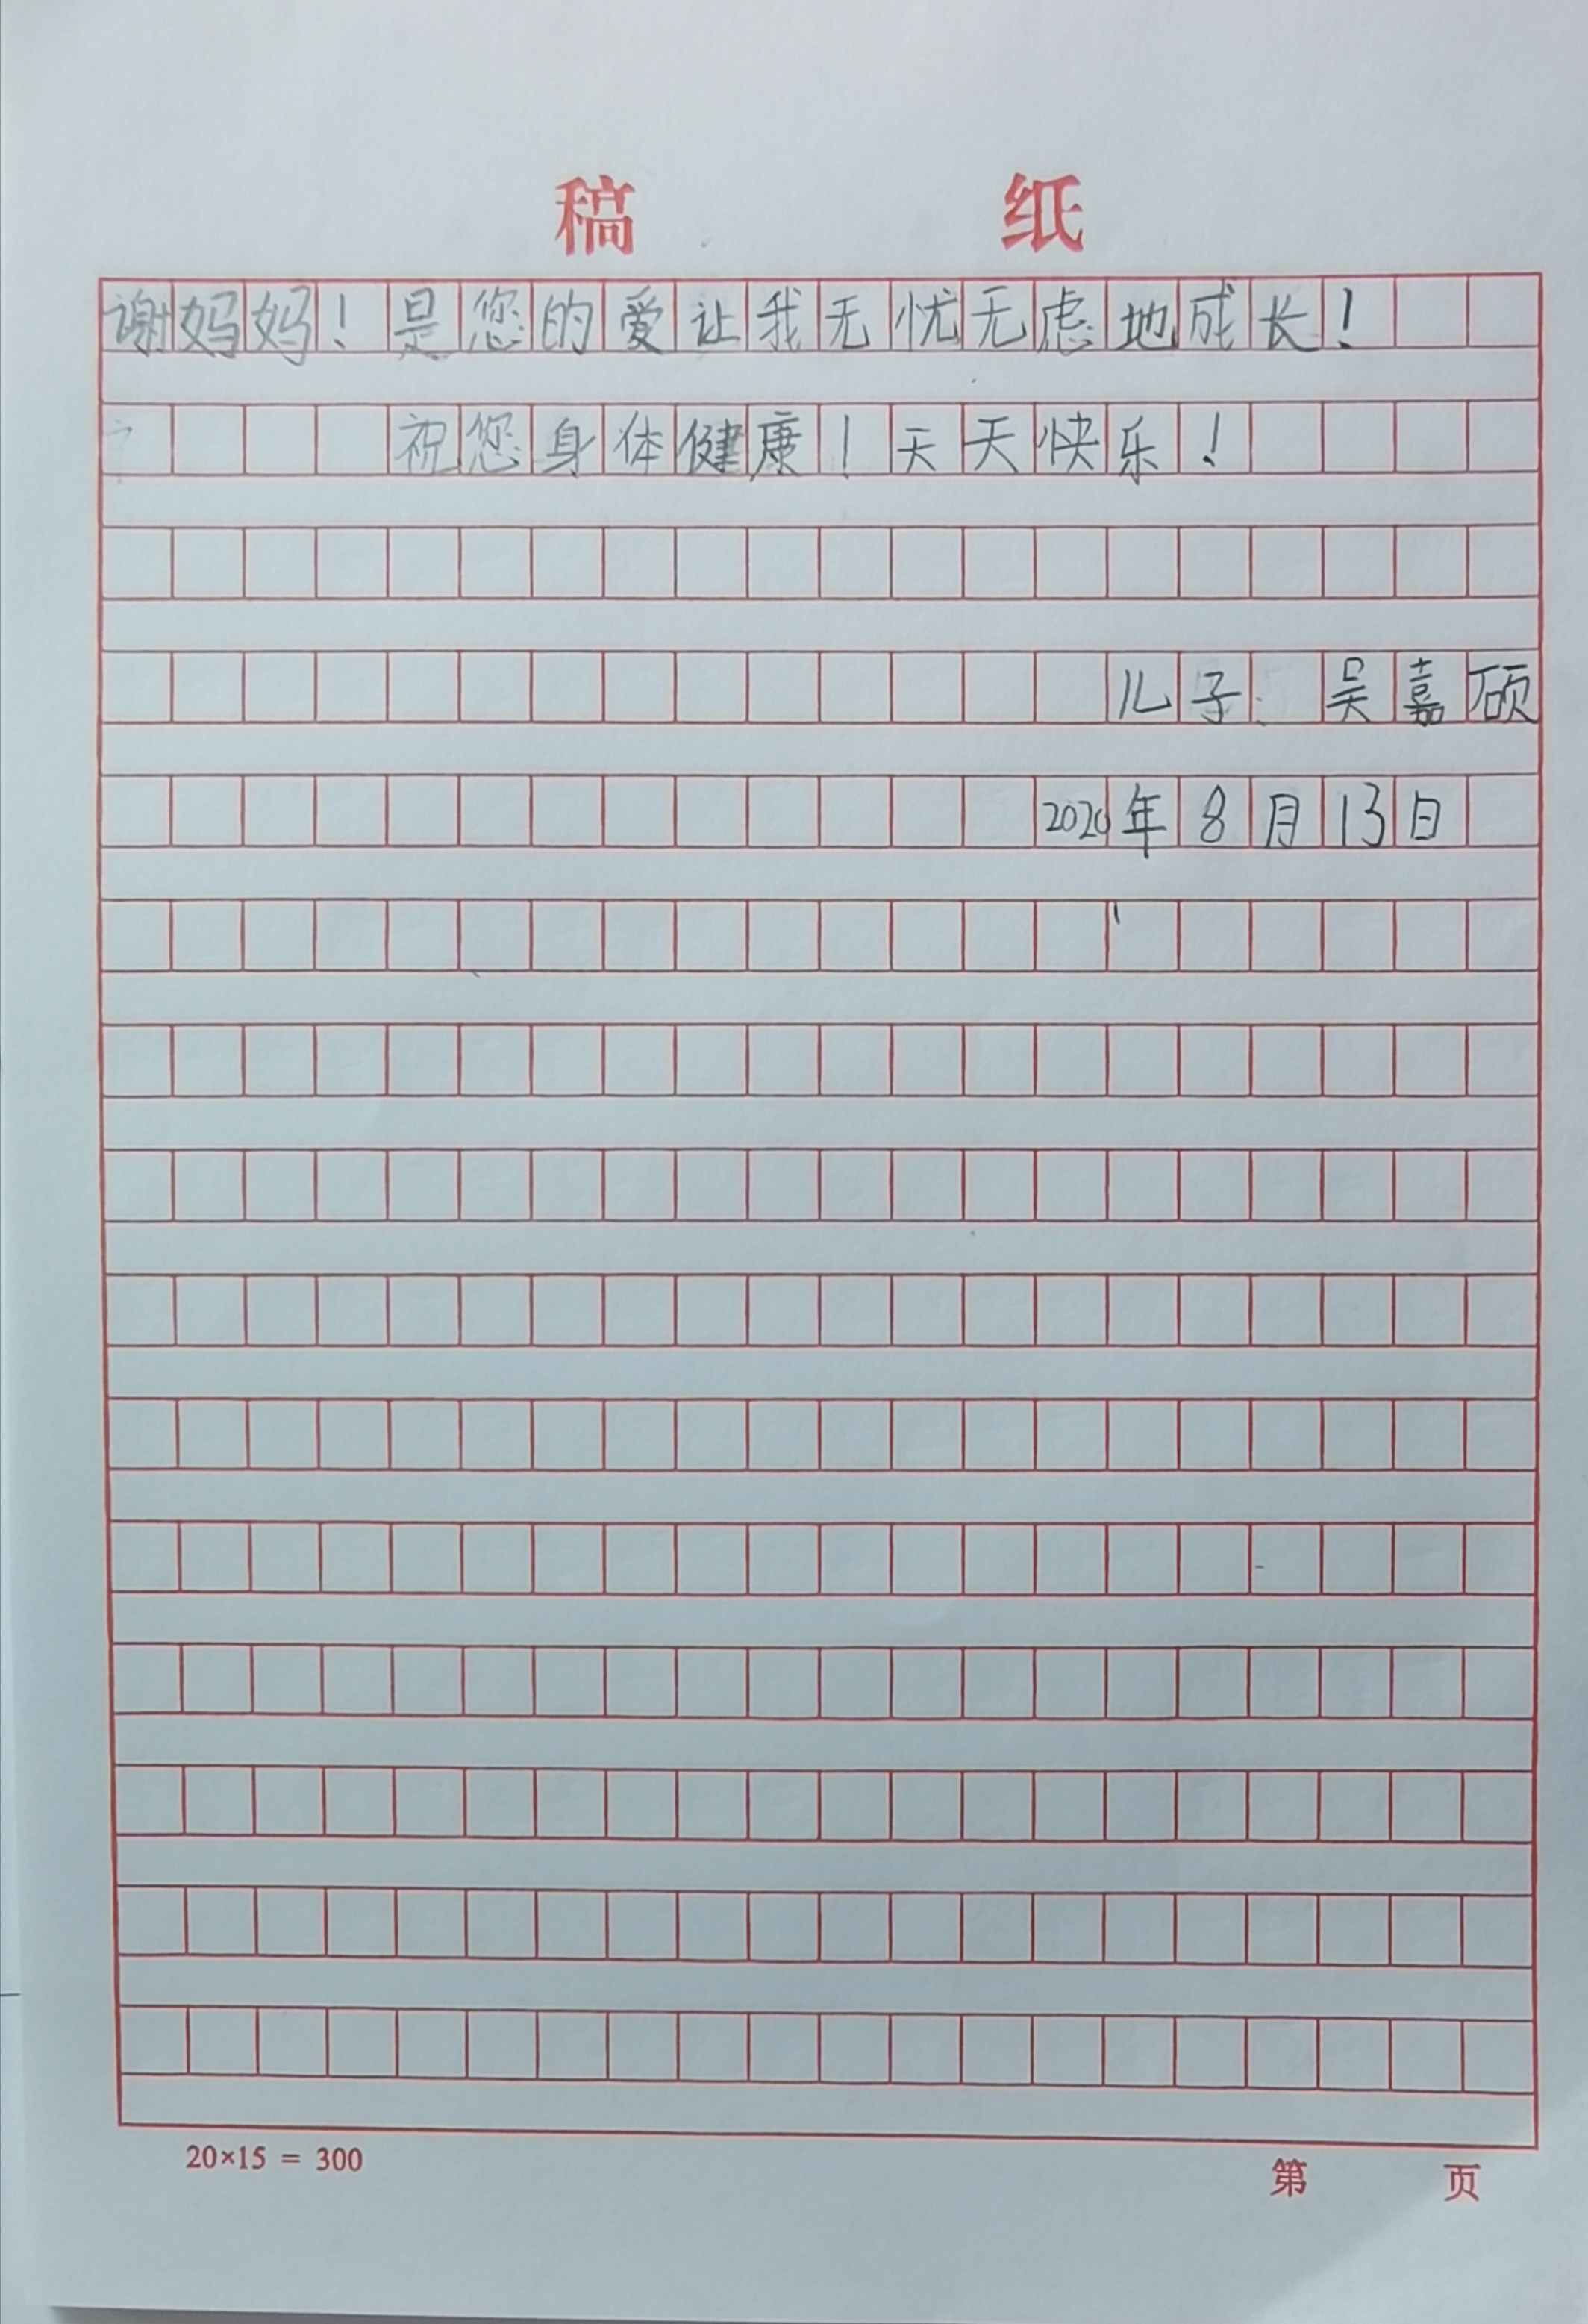 稿 纸
谢妈妈！是您的爱让我无忧无虑地成长！
祝您身体健康！天天快乐！
儿子：吴嘉硕
2020年8月13日
20×15 = 300
第 页